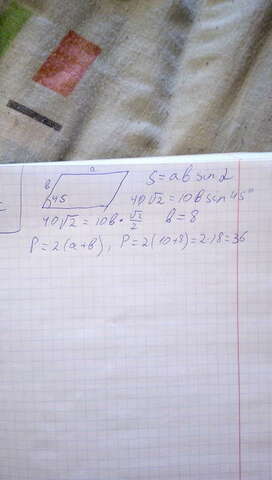 a
в
45
S = ab sin α
40√2 = 10b sin 45°
40√2 = 10b · √2/2   b = 8
P = 2(a+b), P = 2(10+8) = 2·18 = 36